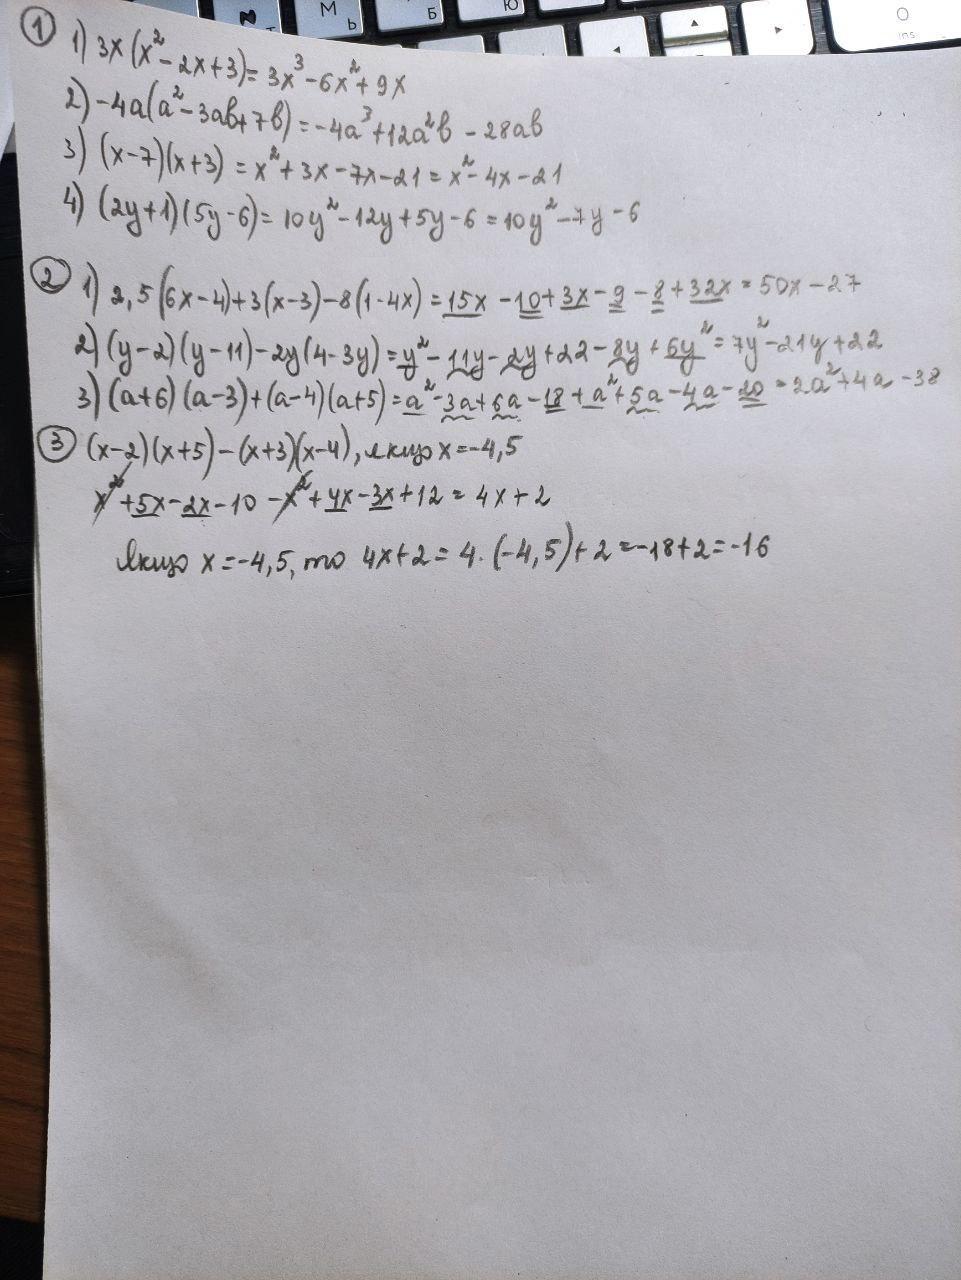 М Ь Б Ю О ins
① 1) 3x(x² - 2x + 3) = 3x³ - 6x² + 9x
2) -4a(a² - 3ab + 7b) = -4a³ + 12a²b - 28ab
3) (x-7)(x+3) = x² + 3x - 7x - 21 = x² - 4x - 21
4) (2y+1)(5y-6) = 10y² - 12y + 5y - 6 = 10y² - 7y - 6
② 1) 2,5(6x-4)+3(x-3)-8(1-4x) = 15x - 10 + 3x - 9 - 8 + 32x = 50x - 27
2) (y-2)(y-11) - 2y(4-3y) = y² - 11y - 2y + 22 - 8y + 6y² = 7y² - 21y + 22
3) (a+6)(a-3)+(a-4)(a+5) = a² - 3a + 6a - 18 + a² + 5a - 4a - 20 = 2a² + 4a - 38
③ (x-2)(x+5) - (x+3)(x-4), якщо x = -4,5
x² + 5x - 2x - 10 - x² + 4x - 3x + 12 = 4x + 2
Якщо x = -4,5, то 4x + 2 = 4 · (-4,5) + 2 = -18 + 2 = -16